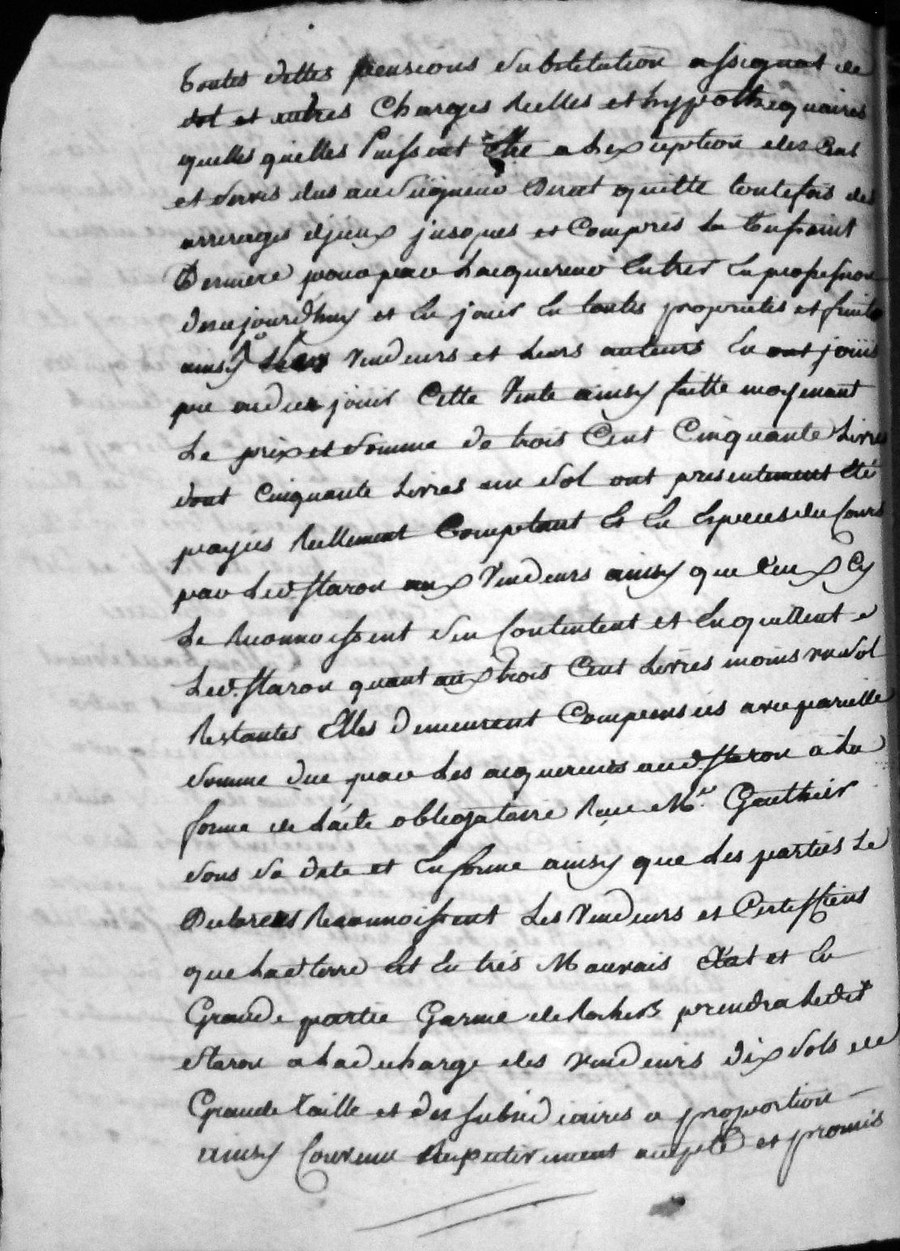 toutes dettes pensions substitution assignat de
dot et autres Charges Reelles et hypothecquaires
quelles quelles Puissent Etre a Lexception des Cent
et servis dus au seigneur Direct quitte toutefois des
arrerages diceux jusques et Compris La toussaint
Derniere pour par Lacquereur Entrer En possession
daujourdhuy et En jouir En toutes proprietés et fruits
ainsy Les Vendeurs et Leurs auteurs En ont jouis
pu ou du jouir Cette Vente ainsy faitte moyenant
Le prix et somme de trois Cent Cinquante Livres
dont Cinquante Livres un sol ont presentement été
payés Reellement Comptant et En Especes du Cours
par Led. staron aux Vendeurs ainsy que Ceux Cy
Le Reconnoissent sen Contentent et En quittent
Led. staron quant aux trois Cent Livres moins un sol
Restantes Elles demeurent Compensées avec pareille
somme due par Les acquereurs aud. staron a La
forme de Lacte obligatoire Reçu Me. Gauthier
sous sa date et En forme ainsy que Les parties Le
Declarent Reconnoissent Les Vendeurs et Certiffient
que Lad. terre Est En très Mauvais Etat et En
Grande partie Garnie de Rochers prendra Ledit
staron a La decharge des Vendeurs dix sols de
Grande taille et des subsidiaires a proportion
ainsy Convenu Respectivement accepté et promis